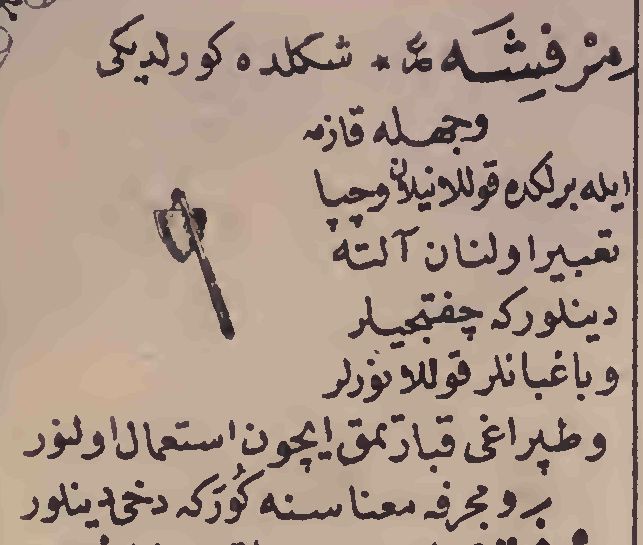 مزفیشه * شکلده کورلدیکی
وجهله قازمه
ایله برلکده قوللانیلان وچپا
تعبیر اولنان آلته
دینلورکه چفتجیلر
وباغبانلر قوللانورلر
وطپراغی قبارتمق ایچون استعمال اولنور
ومجرفه معناسنه کورکه دخی دینلور